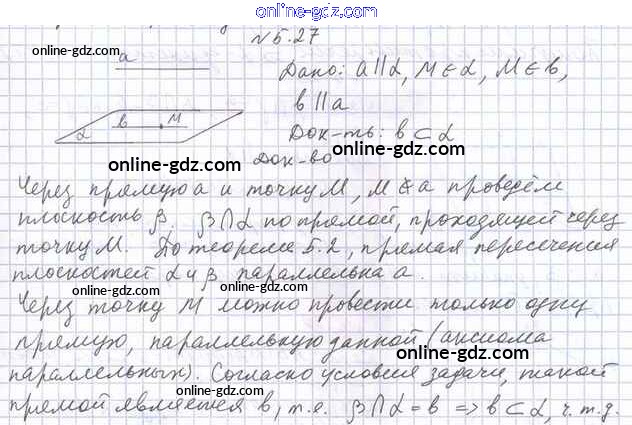 online-gdz.com
№5.27
online-gdz.com
a
Дано: a||α, M∈α, M∈b,
b||a
b M
α
online-gdz.com
Док-ть: b⊂α
online-gdz.com
Док-во
Через прямую a и точку M, M∉a проведём
плоскость β, β∩α по прямой, проходящей через
online-gdz.com
точку M. По теореме 5.2, прямая пересечения
плоскостей α и β параллельна a.
online-gdz.com
Через точку M можно провести только одну
прямую, параллельную данной (аксиома
online-gdz.com
параллельных). Согласно условия задачи, такой
online-gdz.com
прямой является b, т.е. β∩α=b => b⊂α, ч.т.д.
online-gdz.com